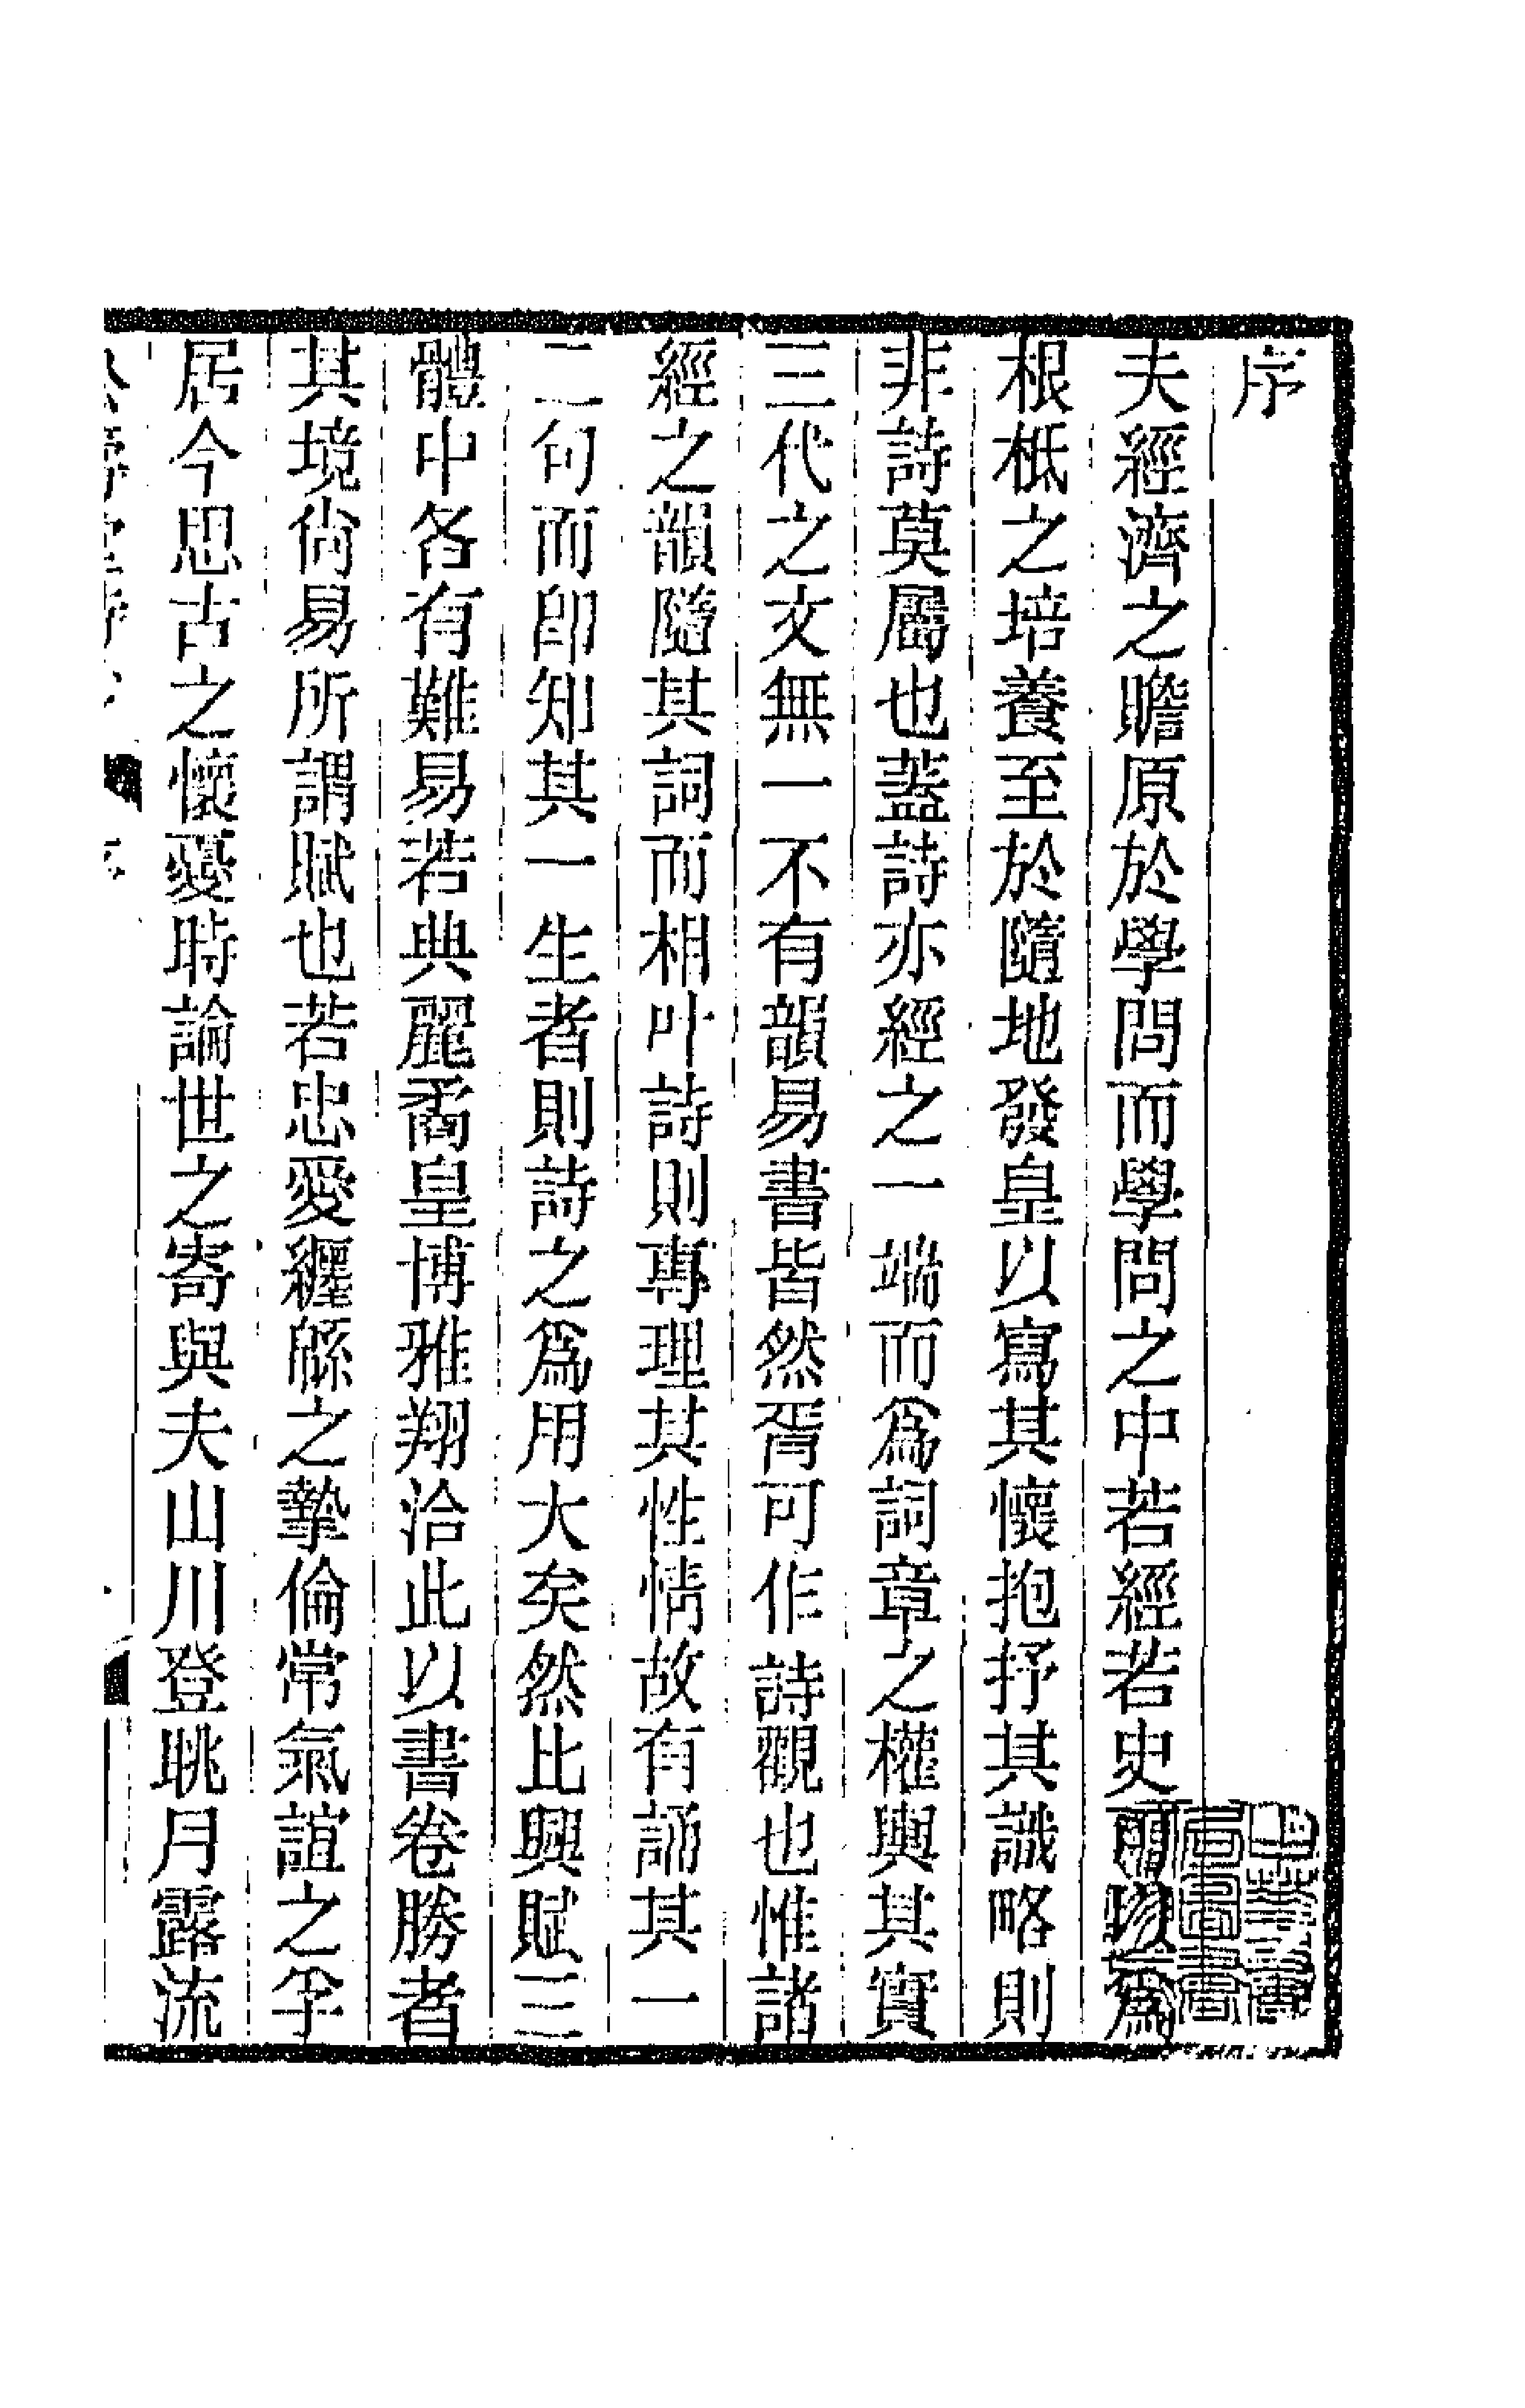 序
夫經濟之贍原於學問而學問之中若經若史爾以爲
根柢之培養至於隨地發皇以寫其懷抱抒其識略則
非詩莫屬也蓋詩亦經之一端而爲詞章之權輿其實
三代之文無一不有韻易書皆然胥可作詩觀也惟諸
經之韻隨其詞而相叶詩則專理其性情故有誦其一
二句而卽知其一生者則詩之爲用大矣然比興賦三
體中各有難易若典麗矞皇博雅翔洽此以書卷勝者
其境尙易所謂賦也若忠愛纏緜之摯倫常氣誼之孚
居今思古之懷憂時論世之寄與夫山川登眺月露流